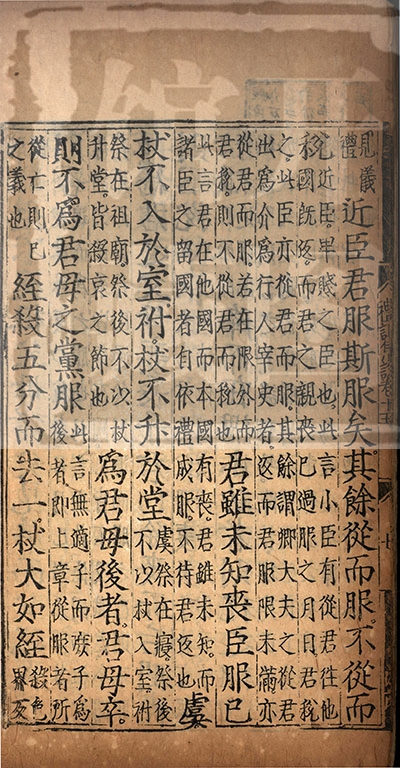 見儀禮近臣君服斯服矣其餘從而服不從而
稅近臣卑賤之臣也此言小臣有從君往他
國既返而君之親喪已過服之月日君稅
之此臣亦從君而服其餘謂卿大夫之從君
出為介為行人宰史者返而君服限未滿亦
從君而服若在限外而
君稅則不從君而稅也君雖未知喪臣服已
此言君在他國而本國有喪君雖未知而
諸臣之留國者自依禮成服不待君返也虞
杖不入於室祔杖不升於堂虞祭在寢祭後
不以杖入室祔
祭在祖廟祭後不以杖
升堂皆殺哀之節也為君母後者君母卒
則不為君母之黨服此言無適子而庶子為
後者即上章從服者所
從亡則已
之義也絰殺五分而去一杖大如絰殺色
界反